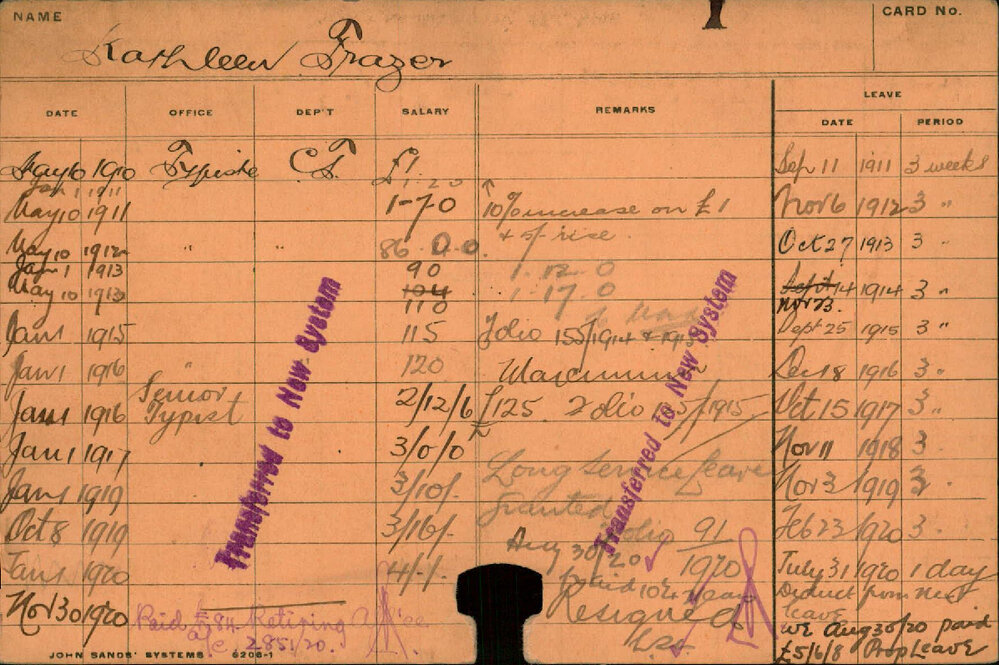 NAME
CARD No.
Kathleen Frazer
LEAVE
DATE OFFICE DEP'T SALARY REMARKS DATE PERIOD
May 10 1910 Typiste C.S. £1 Sep 11 1911 3 weeks
Jan 1 1911 1.2.0
May 10 1911 1-7-0 10% increase on £1 Nov 6 1912 3 "
& of rise
May 10 1912 " " 86.0.0. Oct 27 1913 3 "
Jan 1 1913 90 1.12.0
May 10 1913 104 1.17.0 Sept 14 1914 3 "
110 Nov 23.
Jan 1 1915 115 Folio 155/1914 & 1915 Sept 25 1915 3 "
Jan 1 1916 120 Maximum Dec 18 1916 3 "
Jan 1 1916 Senior Typist 2/12/6 £125 Folio 5/1915 Oct 15 1917 3 "
Jan 1 1917 3/0/0 Nov 11 1918 3 "
Jan 1 1919 3/10/- Long Service leave Nov 3 1919 3 "
Granted
Oct 8 1919 3/16/- folio 91/1920 Feb 23 1920 3 "
Jan 1 1920 4/-/- Aug 30/20 July 31 1920 1 day
paid Deduct from next
leave
Nov 30 1920 Resigned
Paid £84 Retiring
285/20.
WE Aug 30/20 paid
£5/6/8 Prop Leave
Transferred to New System
Transferred to New System
JOHN SANDS' SYSTEMS 6208-1